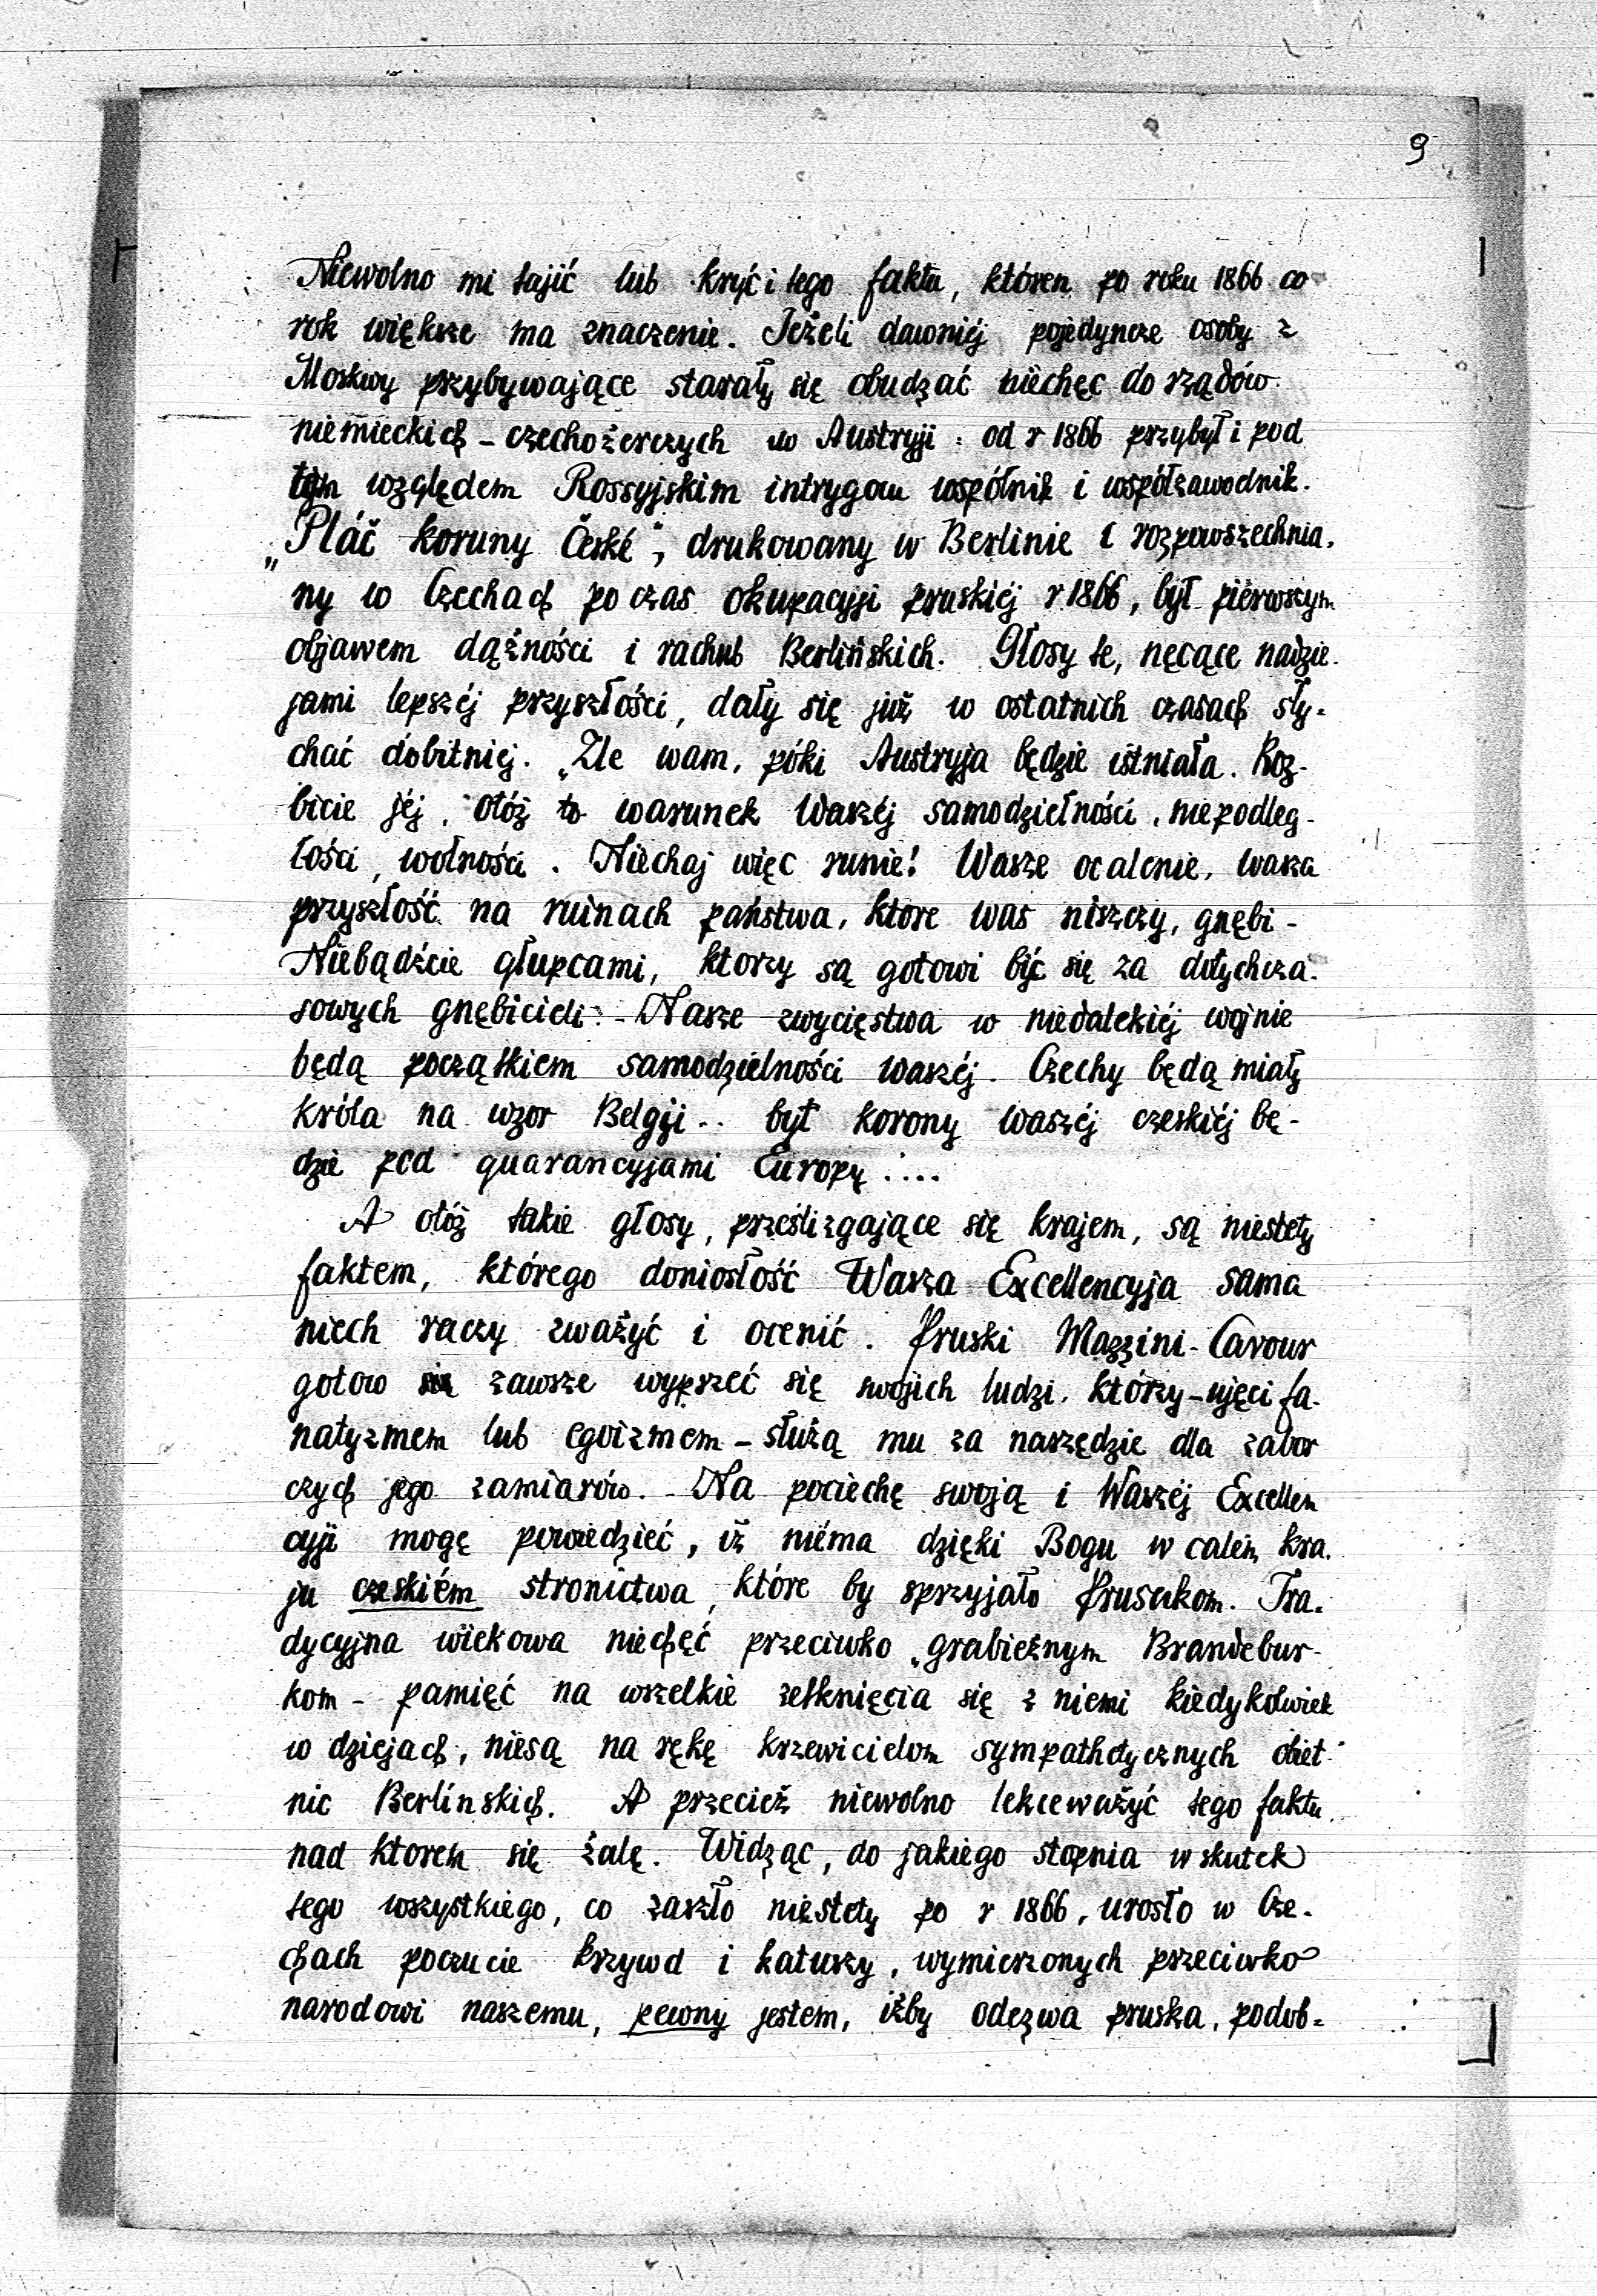 9
Niewolno mi tajić lub kryć i tego faktu, któren po roku 1866 co
rok większe ma znaczenie. Jeżeli dawniéj pojedyncze osoby z
Moskwy przybywające starały się obudzać niechęc do rządów
niemieckich – czechożerczych w Austryji : od r 1866 przybył i pod
tym względem Rossyjskim intrygom wspólnik i współzawodnik.
„Pláč koruny České“, drukowany w Berlinie i rozpowszechnia-
ny w Czechach po czas okupacyji pruskiéj r 1866, był piérwszym
objawem dążności i rachub Berlińskich. Głosy te, nęcące nadzie-
jami lepszéj przyszłości, dały się już w ostatnich czasach sły-
chać dobitniej. „Zle wam, póki Austryja będzie istniała. Roz-
bicie jéj, otóż to warunek Waszéj samodzielności, niepodleg-
łości, wolności. Niechaj więc runie! Wasze ocalenie, wasza
przyszłość na ruinach państwa, ktore was niszczy, gnębi -
Niebądźcie głupcami, ktorzy są gotowi bić się za dotychcza-
sowych gnębicieli. - Nasze zwycięstwa w niedalekiéj wojnie
będą początkiem samodzielności waszéj. Czechy będą miały
króla na wzor Belgji.. byt korony waszéj czeskiéj bę-
dzie pod guarancyjami Europy ....
A otóż takie głosy, prześlizgające się krajem, są niestety
faktem, którego doniosłość Wasza Excellencyja sama
niech raczy zważyć i ocenić. Pruski Mazzini-Cavour
gotow zawsze wyprzeć się swojich ludzi, którzy – ujęci fa-
natyzmem lub egoizmem – służą mu za narzędzie dla zabor
czych jego zamiarów. - Na pociechę swoją i Waszéj Excellen
cyji mogę powiedzieć, iż niéma dzięki Bogu w calém kra-
ju czeskiém stronictwa, które by sprzyjało Prusakom. Tra-
dycyjna wiekowa niechęć przeciwko „grabieżnym Brandebur-
kom - pamięć na wszelkie zetknięcia się z niemi kiedykolwiek
w dziejach, niesą na rękę krzewicielom sympathetycznych obiet-
nic Berlínskich. A przecież niewolno lekceważyć tego faktu
nad ktorem się żalę. Widząc, do jakiego stopnia wskutek
tego wszystkiego, co zaszło niestety po r 1866, urosło w Cze-
chach poczucie krzywd i katuszy, wymierzonych przeciwko
narodowi naszemu, pewny jestem, iżby odezwa pruska, podob-